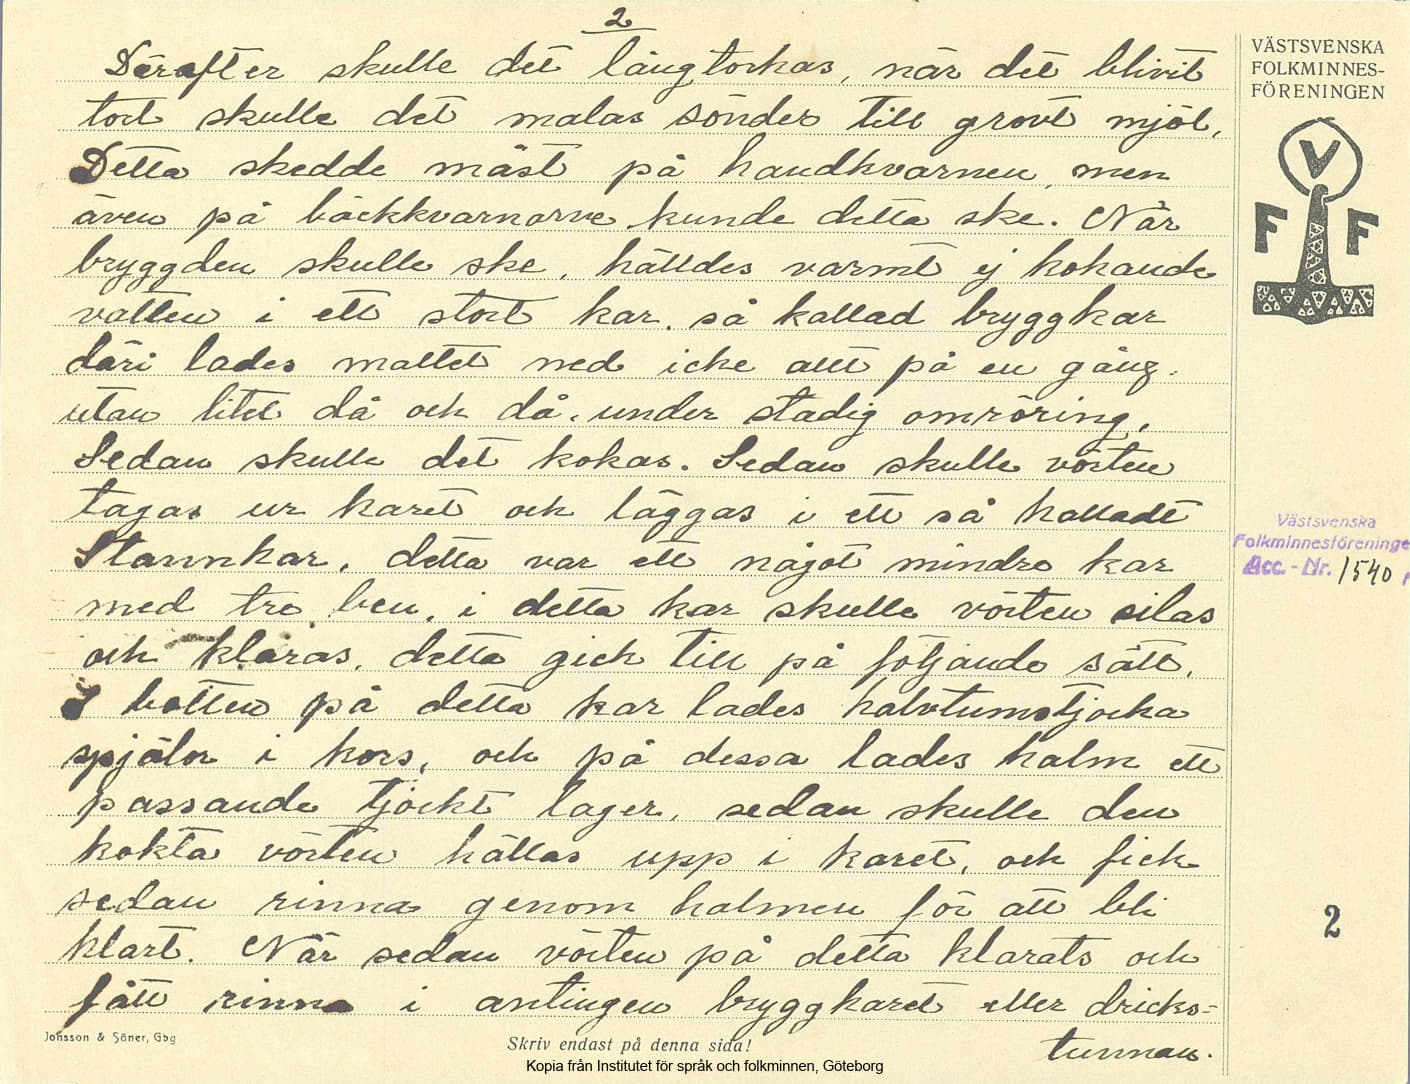 2
Därafter skulle det långtorkas, när det blivit
tort skulle det malas sönder till grovt mjöl,
Detta skedde mäst på handkvarnen, men
även på bäckkvarnarne kunde detta ske. När
bryggden skulle ske, hälldes varmt ej kokande
vatten i ett stort kar, så kallad bryggkar
däri lades maltet ned icke allt på en gång.
utan litet då och då, under stadig omröring,
Sedan skulle det kokas. Sedan skulle vörten
tagas ur karet och läggas i ett så kalladt
Stannkar, detta var ett något mindre kar
med tre ben, i detta kar skulle vörten silas
och klaras, detta gick till på följande sätt,
I botten på detta kar lades halvtumstjocka
spjälor i kors, och på dessa lades halm ett
passande tjockt lager, sedan skulle den
kokta vörten hällas upp i karet, och fick
sedan rinna genom halmen för att bli
klart. När sedan vörten på detta klarats och
fått rinna i antingen bryggkaret eller dricks-
tunnan.
VÄSTSVENSKA
FOLKMINNES-
FÖRENINGEN
V
F F
Västsvenska
Folkminnesföreninge
Acc.-Nr. 1540
2
Jonsson & Söner, Gbg
Skriv endast på denna sida!
Kopia från Institutet för språk och folkminnen, Göteborg